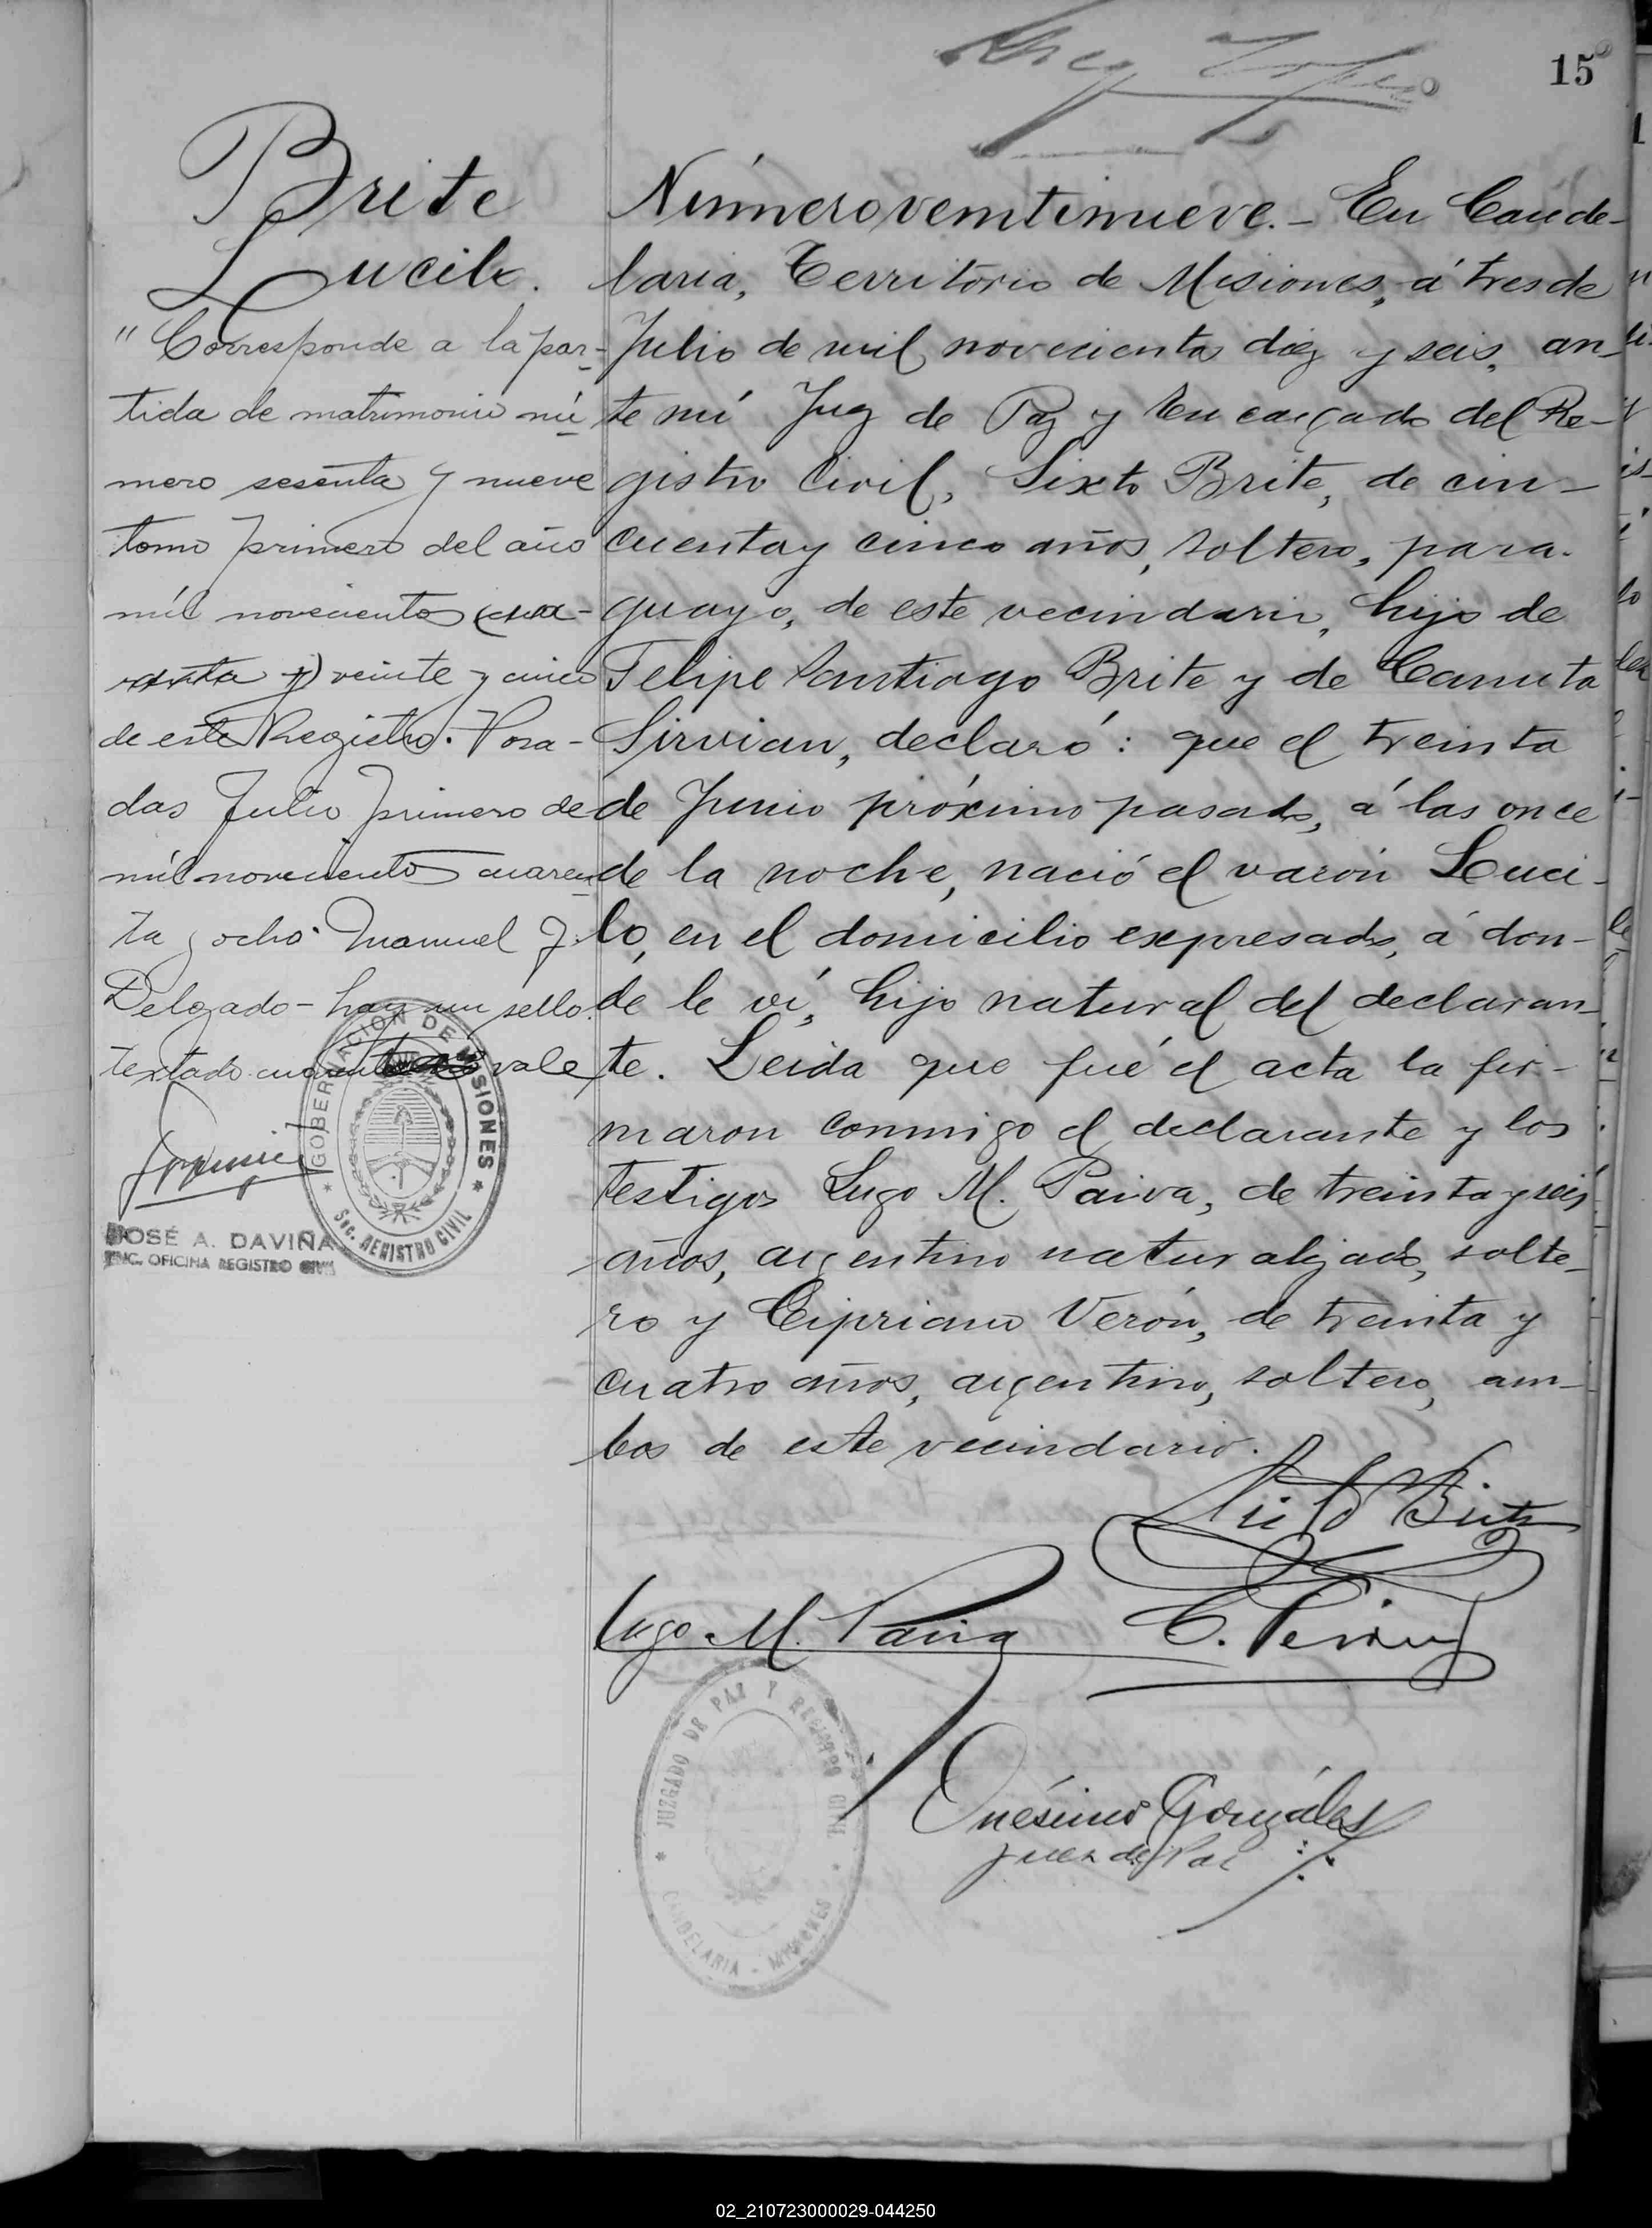 15
Brite
Lucilo.
"Corresponde a la par-
tida de matrimonio nú
mero sesenta y nueve
tomo primero del año
mil novecientos (cua-
renta y) veinte y cinco
de este Registro. Posa-
das Julio primero de
mil novecientos cuaren-
ta y ocho. Manuel J.
Delgado - hay un sello.
testado vale
GOBERNACION DE MISIONES
Sec. REGISTRO CIVIL
JOSÉ A. DAVIÑA
ENC. OFICINA REGISTRO CIVIL
Número veintinueve. - En Cande-
laria, Territorio de Misiones, á tres de
Julio de mil novecientos diez y seis, an-
te mí Juez de Paz y Encargado del Re-
gistro Civil, Sixto Brite, de cin-
cuenta y cinco años, soltero, para-
guayo, de este vecindario, hijo de
Felipe Santiago Brite y de Canuta
Sirvian, declaró: que el treinta
de Junio próximo pasado, á las once
de la noche, nació el varón Luci-
lo, en el domicilio expresado, á don-
de le ví, hijo natural del declaran-
te. Leida que fué el acta la fir-
maron conmigo el declarante y los
testigos Lugo M. Paiva, de treinta y seis
años, argentino naturalizado, solte-
ro y Cipriano Verón, de treinta y
cuatro años, argentino, soltero, am-
bos de este vecindario.
Sixto Brite
Lugo M. Paiva C. Verón
JUZGADO DE PAZ Y REGISTRO CIVIL
CANDELARIA - MISIONES
Onésimo González
Juez de Paz
02_210723000029-044250